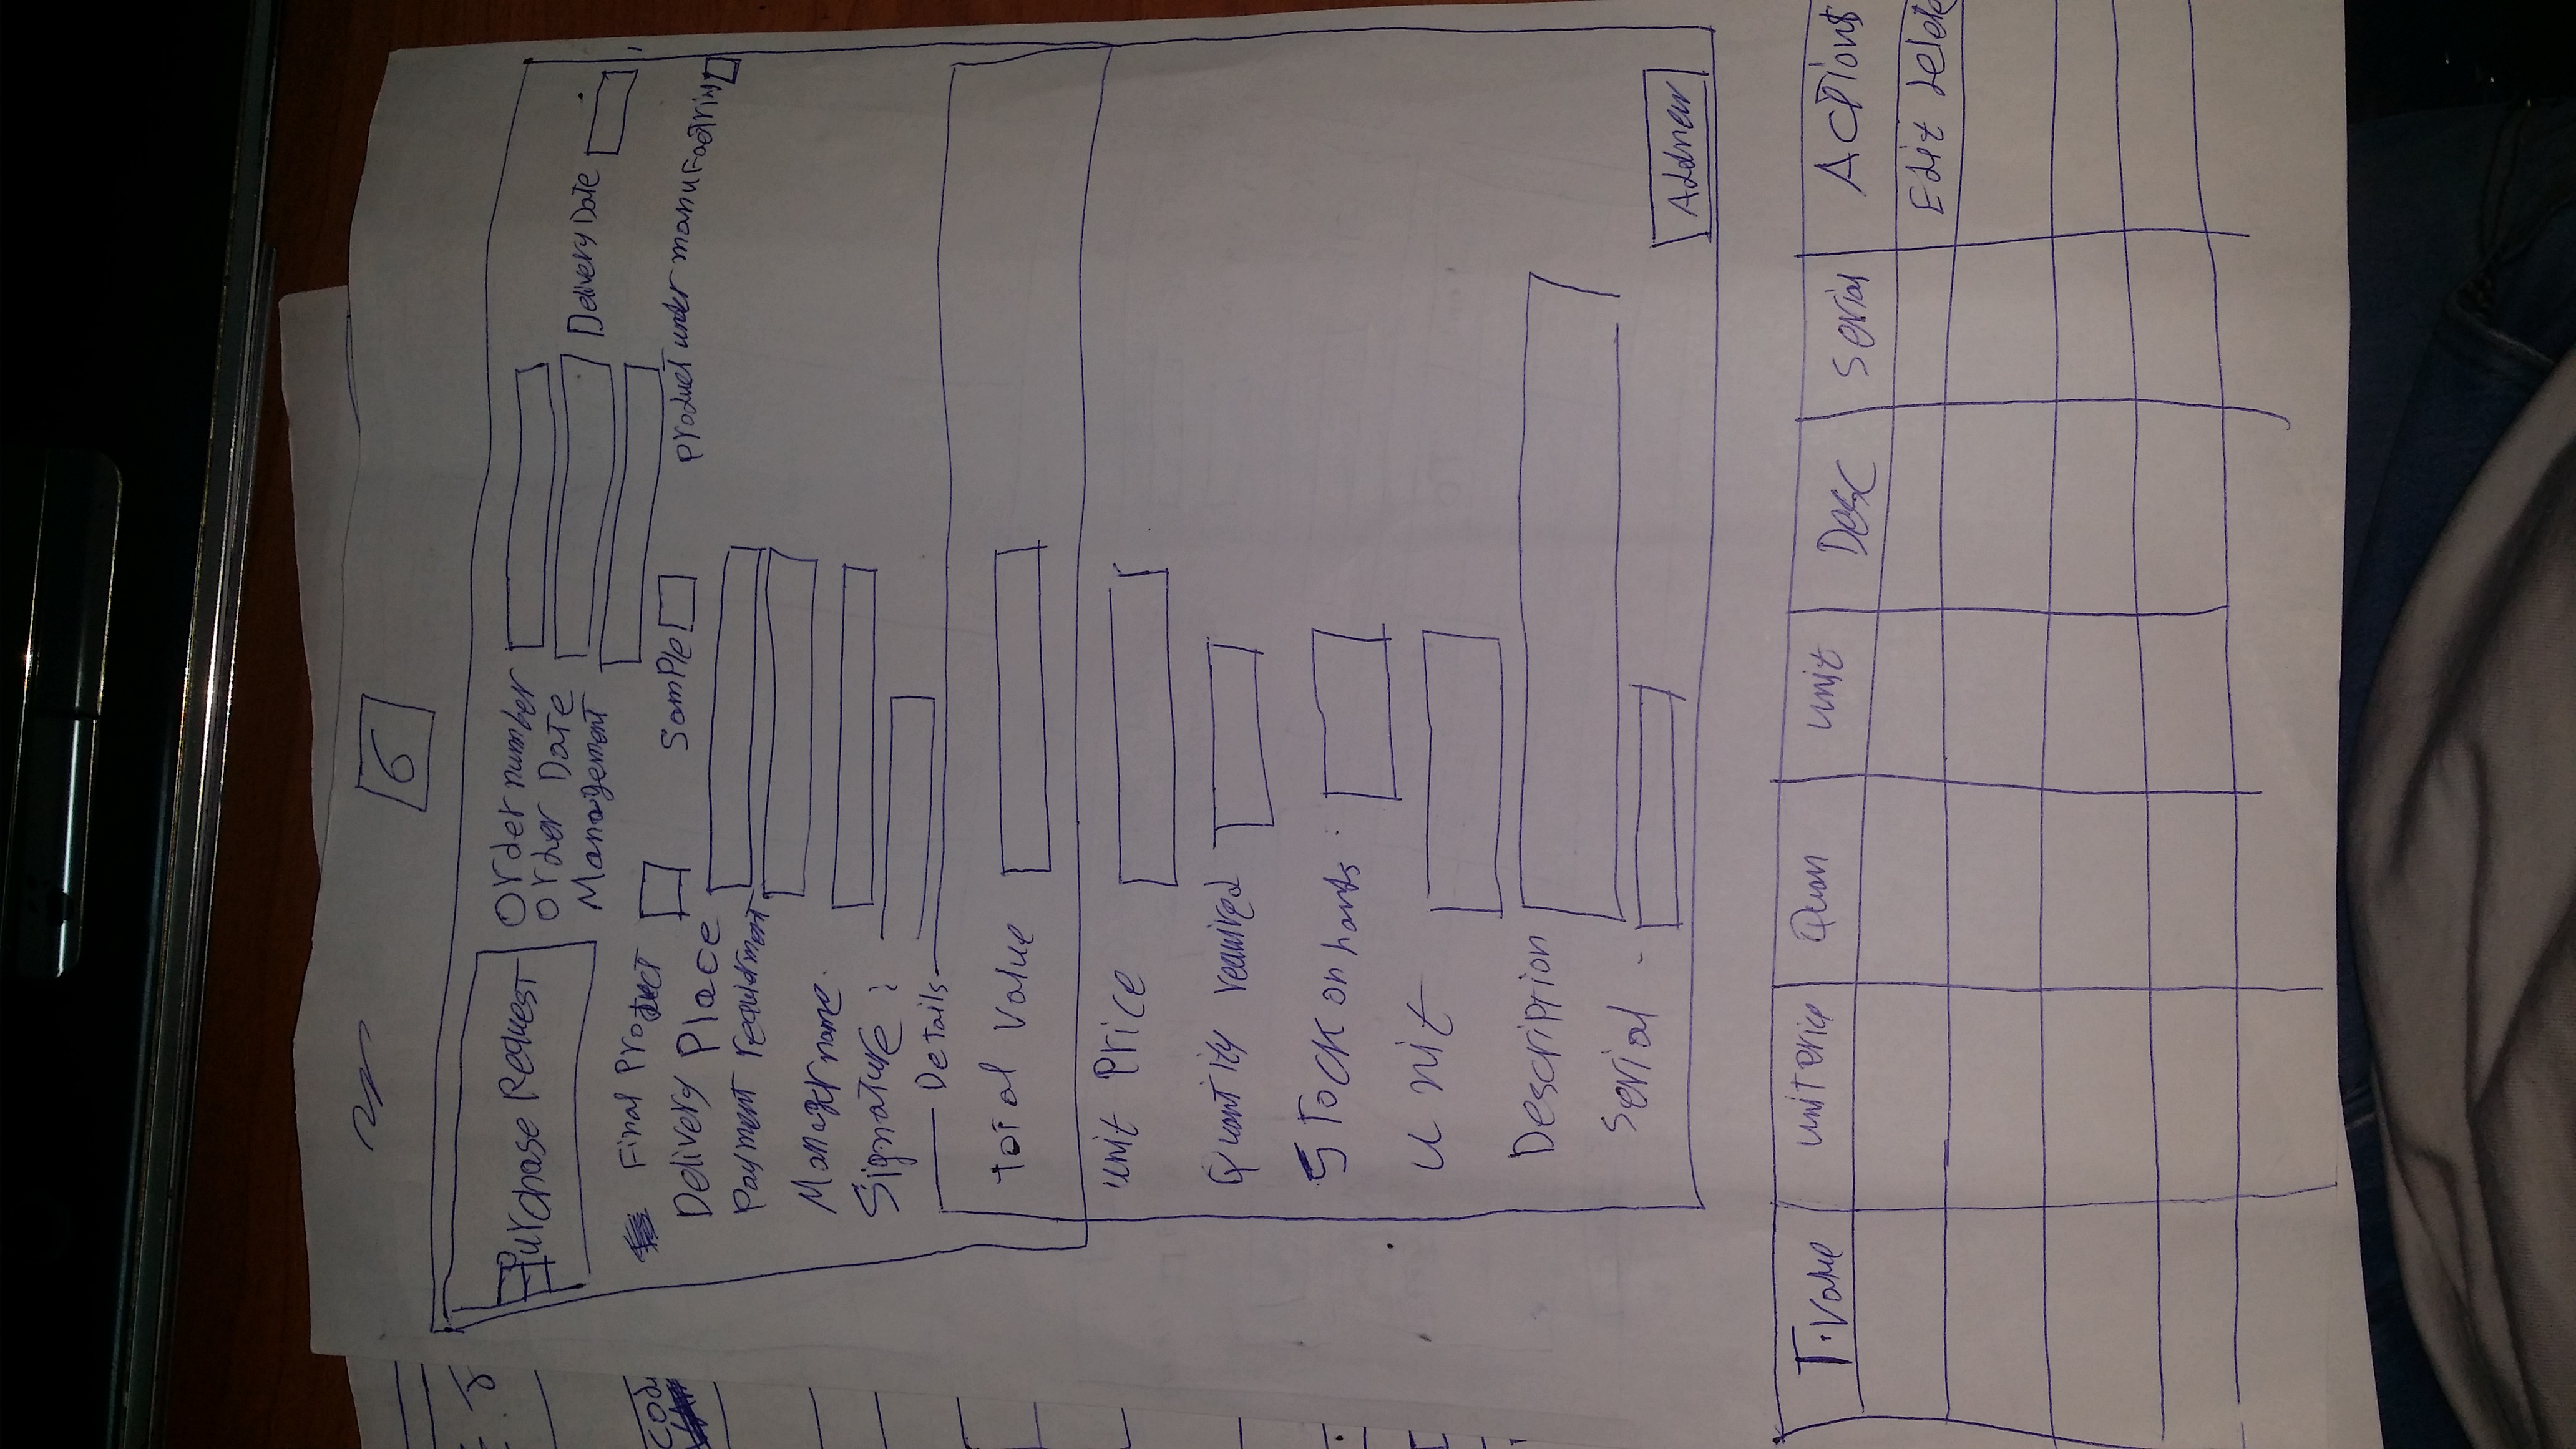 6
Purchase Request
Order number
Order Date
Management
Delivery Date
Final Product
Sample
Product under manufactring
Delivery Place
Payment requirment
Manager name.
Signature :
Details
total value
unit Price
Quantity required
Stock on hands :
Unit
Description
Serial -
Addnew
T.Value unit Price Quan unit Desc Serial Actions
Edit Delete
Code